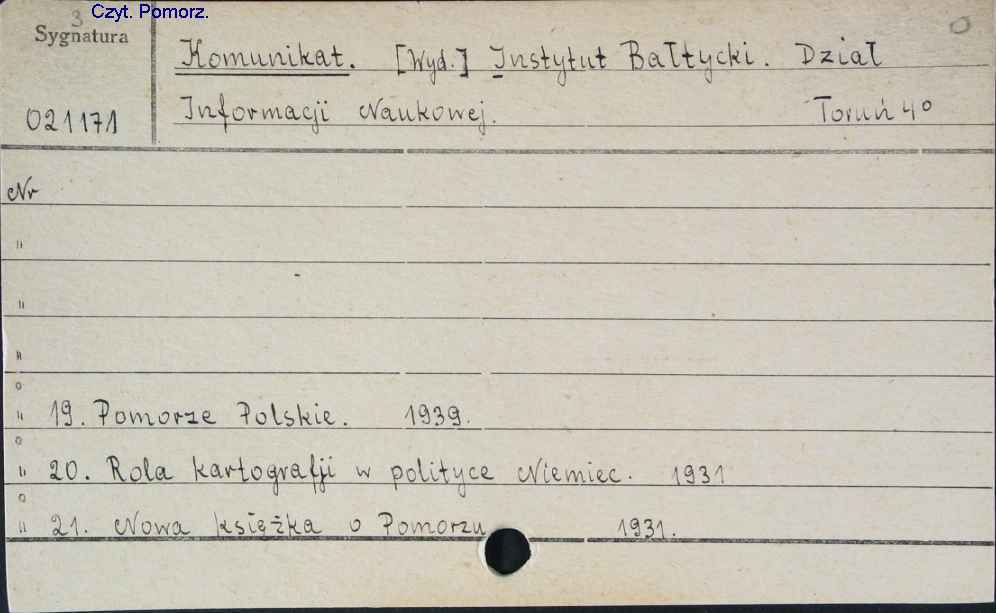 3 Czyt. Pomorz.
Sygnatura
021171
Komunikat. [Wyd.] Instytut Bałtycki. Dział
Informacji Naukowej. Toruń 4º
Nr
"
"
"
" 19. Pomorze Polskie. 1939.
" 20. Rola kartografji w polityce Niemiec. 1931
" 21. Nowa książka o Pomorzu 1931.